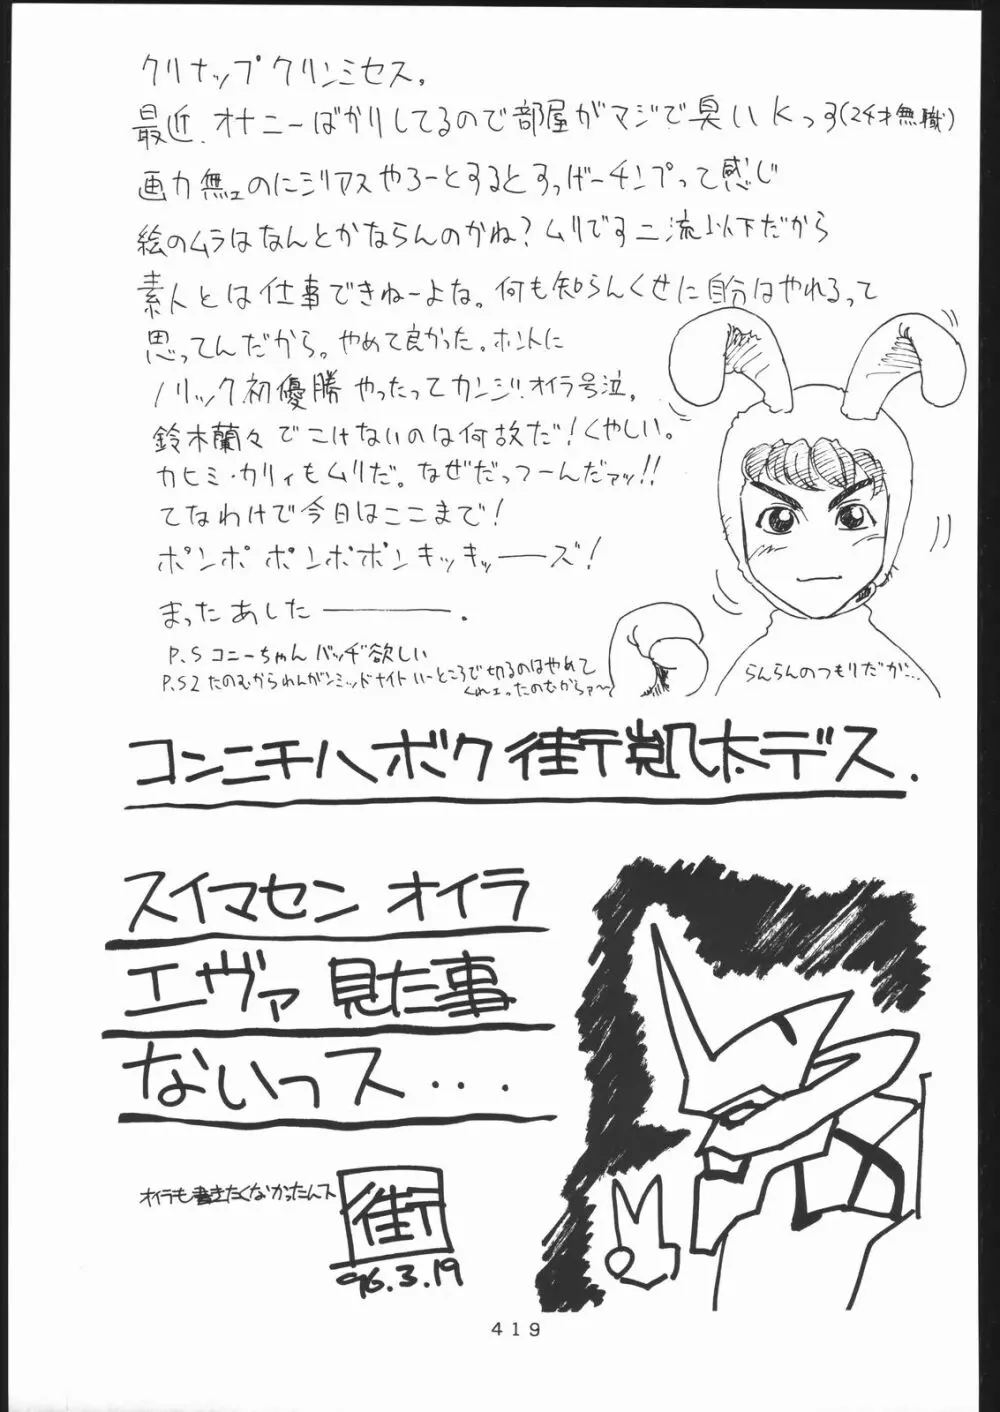 クリナップクリンミセス。
最近、オナニーばかりしてるので部屋がマジで臭いKっす(24才無職)
画力無ェのにシリアスやろーとするとすっげーチンプって感じ
絵のムラはなんとかならんのかね?ムリです二流以下だから
素人とは仕事できねーよな。何も知らんくせに自分はやれるって
思ってんだから。やめて良かった。ホントに
ノリック初優勝やったってカンジ。オイラ号泣。
鈴木蘭々でこけないのは何故だ!くやしい。
カヒミ・カリィもムリだ。なぜだっつーんだァッ!!
てなわけで今日はここまで!
ポンポ ポンポポンキッキッーズ!
まったあしたー。
P.S コニーちゃんバッヂ欲しい
P.S2 たのむからわんがンミッドナイトいーところで切るのはやめて
くれェったのむからァ〜
らんらんのつもりだが…
コンニチハボク街凱太デス.
スイマセン オイラ
エヴァ 見た事
ないっス...
オイラも書きたくなかったんス
街
'96.3.19
419